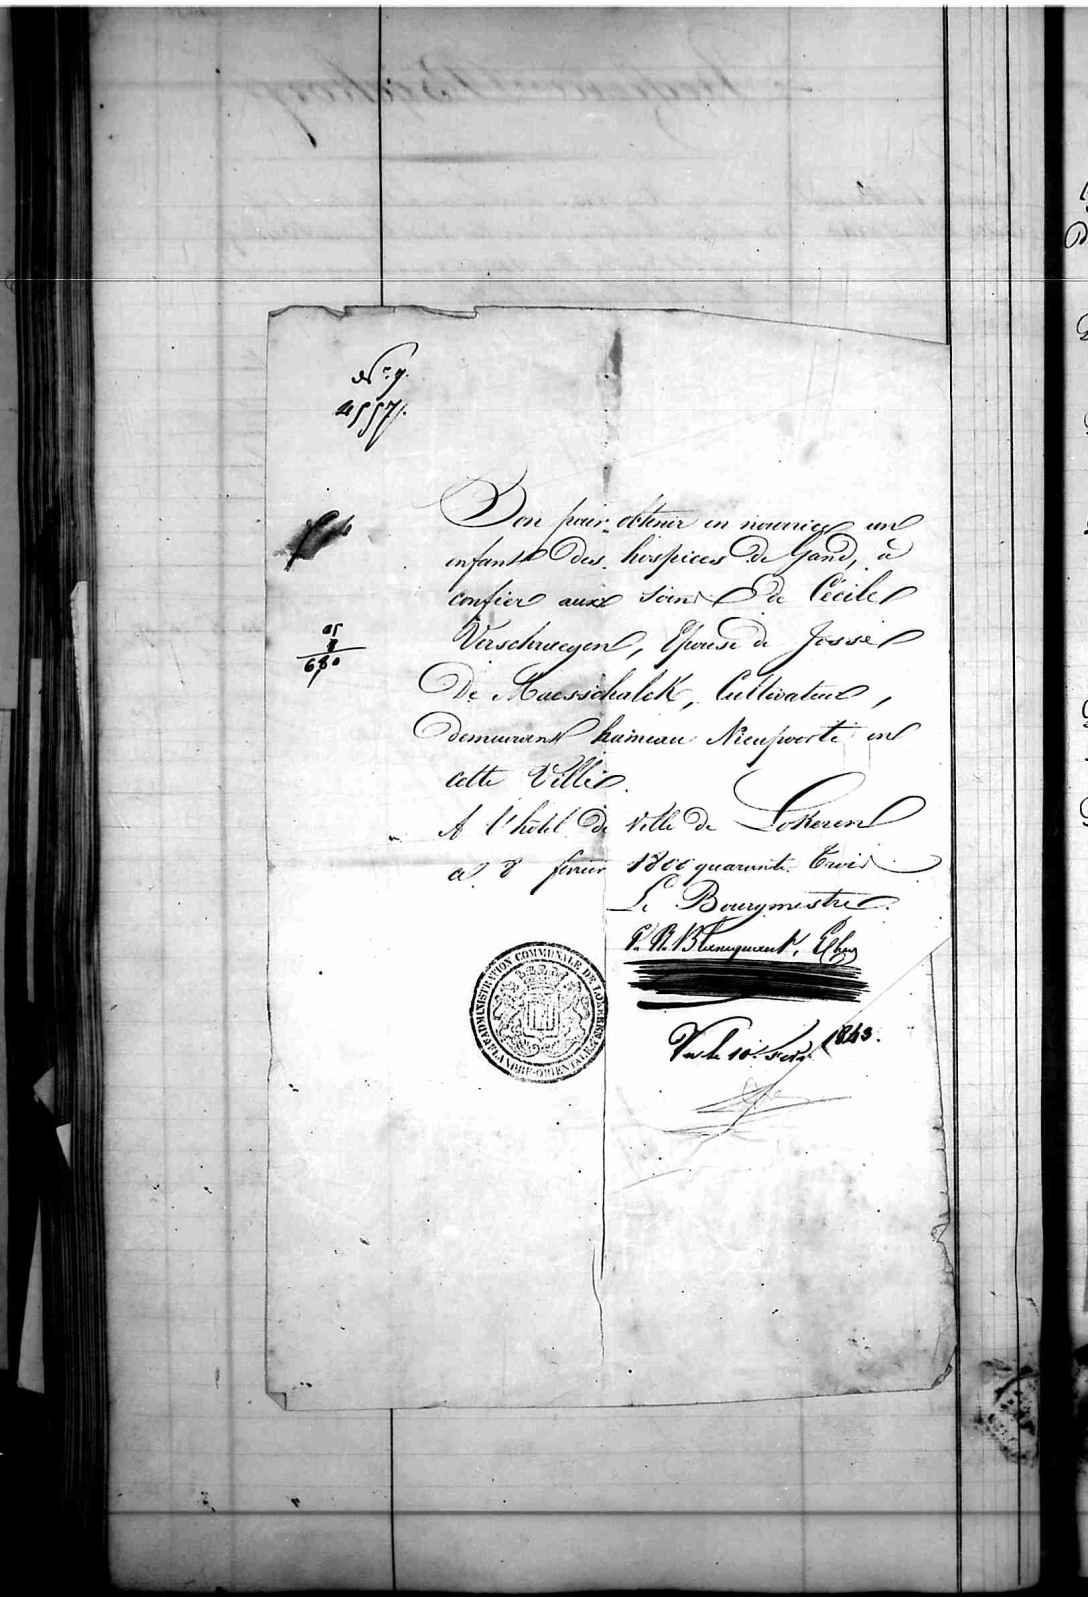 Nr. 9.
4557.
Bon pour obtenir en nourrice un
enfant des hospices de Gand, à
confier aux soins de Cécile
Verschraegen, Epouse de Josse
De Maesschalck, Cultivateur,
demeurant hameau Nieuporte en
cette Ville.
A l'hôtel de ville de Lokeren
ce 8 février 1800 quarante trois.
Le Bourgmestre.
Vu le 10 Fevr. 1843.
ADMINISTRATION COMMUNALE DE LOKEREN
FLANDRE-ORIENTALE